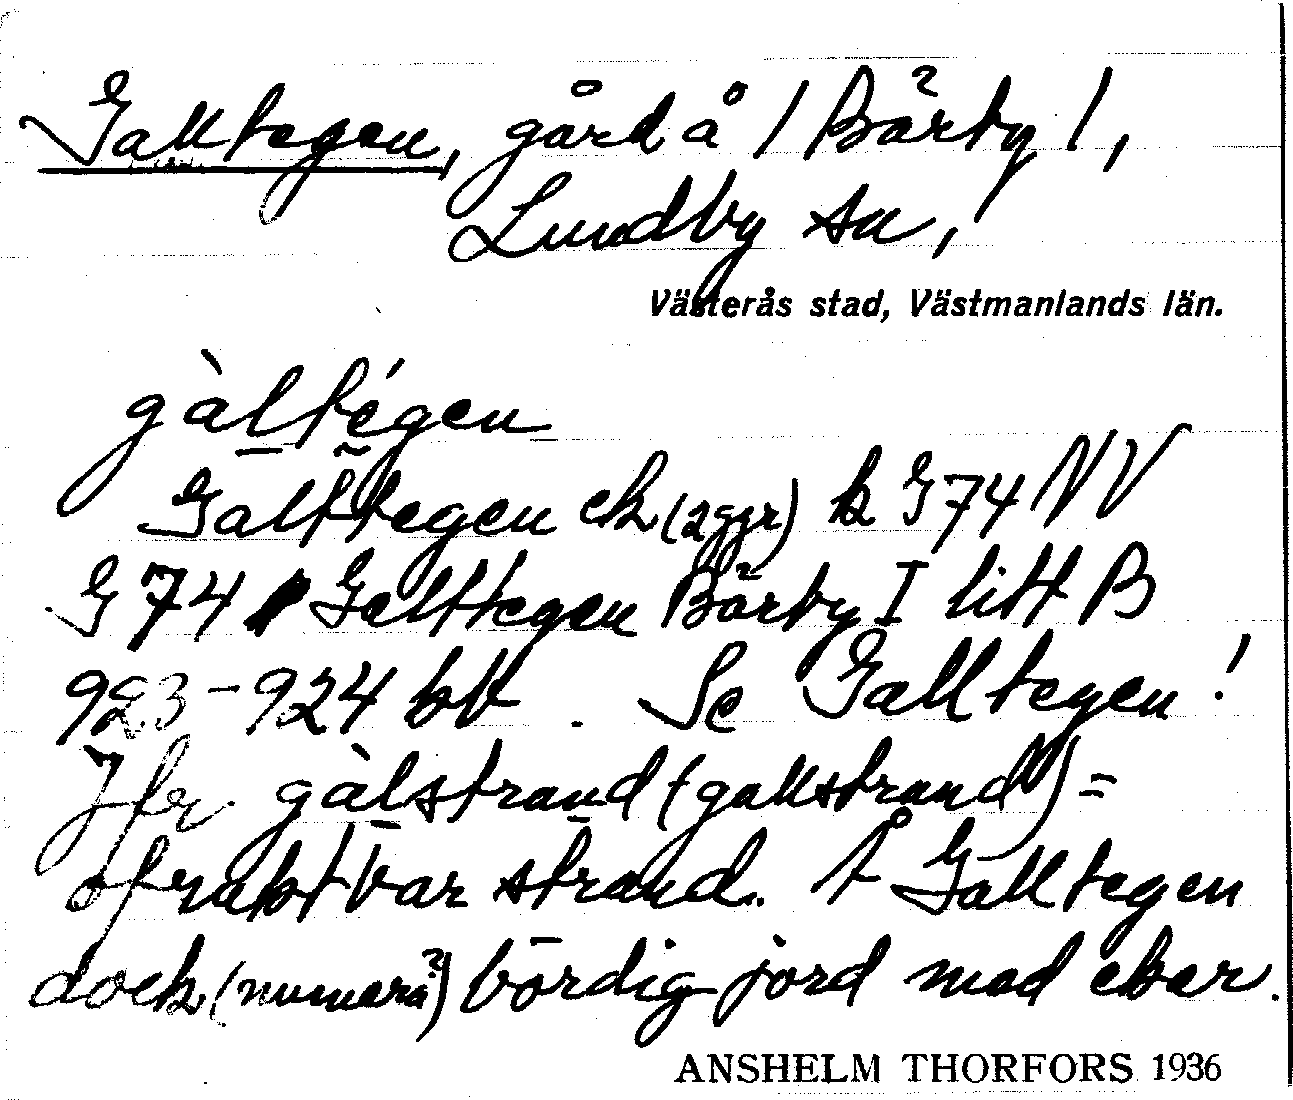 Galltegen, gård å / Bärby /,
Lundby sn,
Västerås stad, Västmanlands län.
gàltégen
Galttegen ek (2 ggr) k G74 NV
G 74 Galttegen Bärby I litt B
923-924 bV. Se Galltegen!
Jfr gàlstrand (gallstrand) =
ofruktbar strand. Å Galltegen
dock (numera?) bördig jord med ekar.
ANSHELM THORFORS 1936